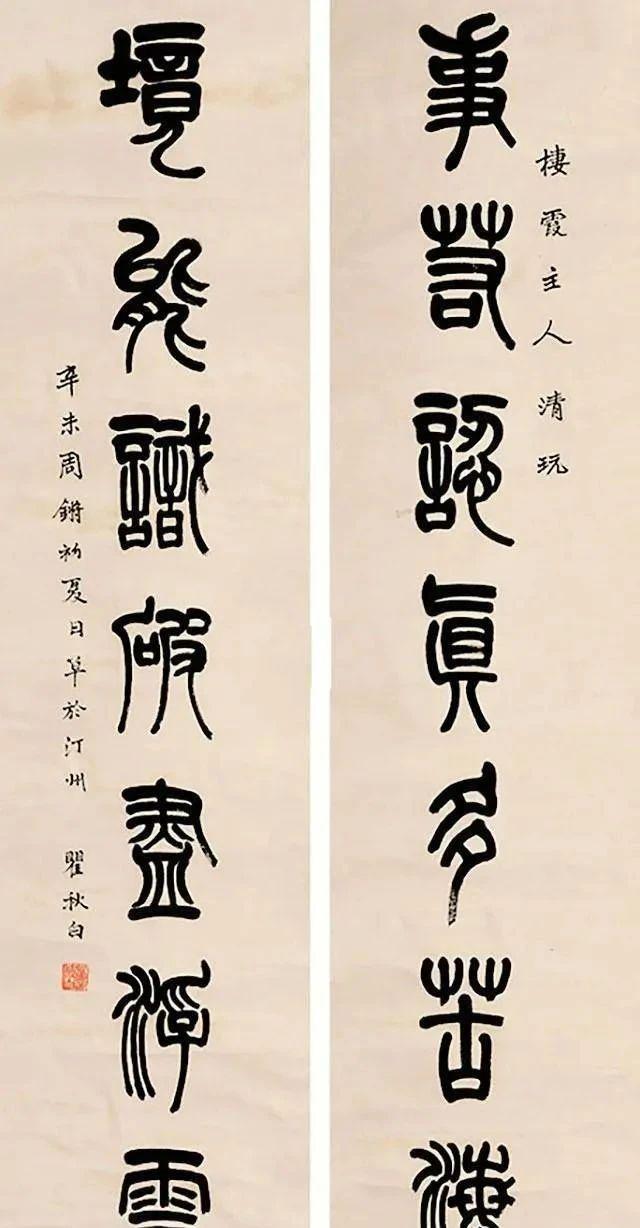 棲霞主人清玩
事若認真多苦海
境能識破盡浮雲
辛未周鏘初夏日草於汀州
瞿秋白